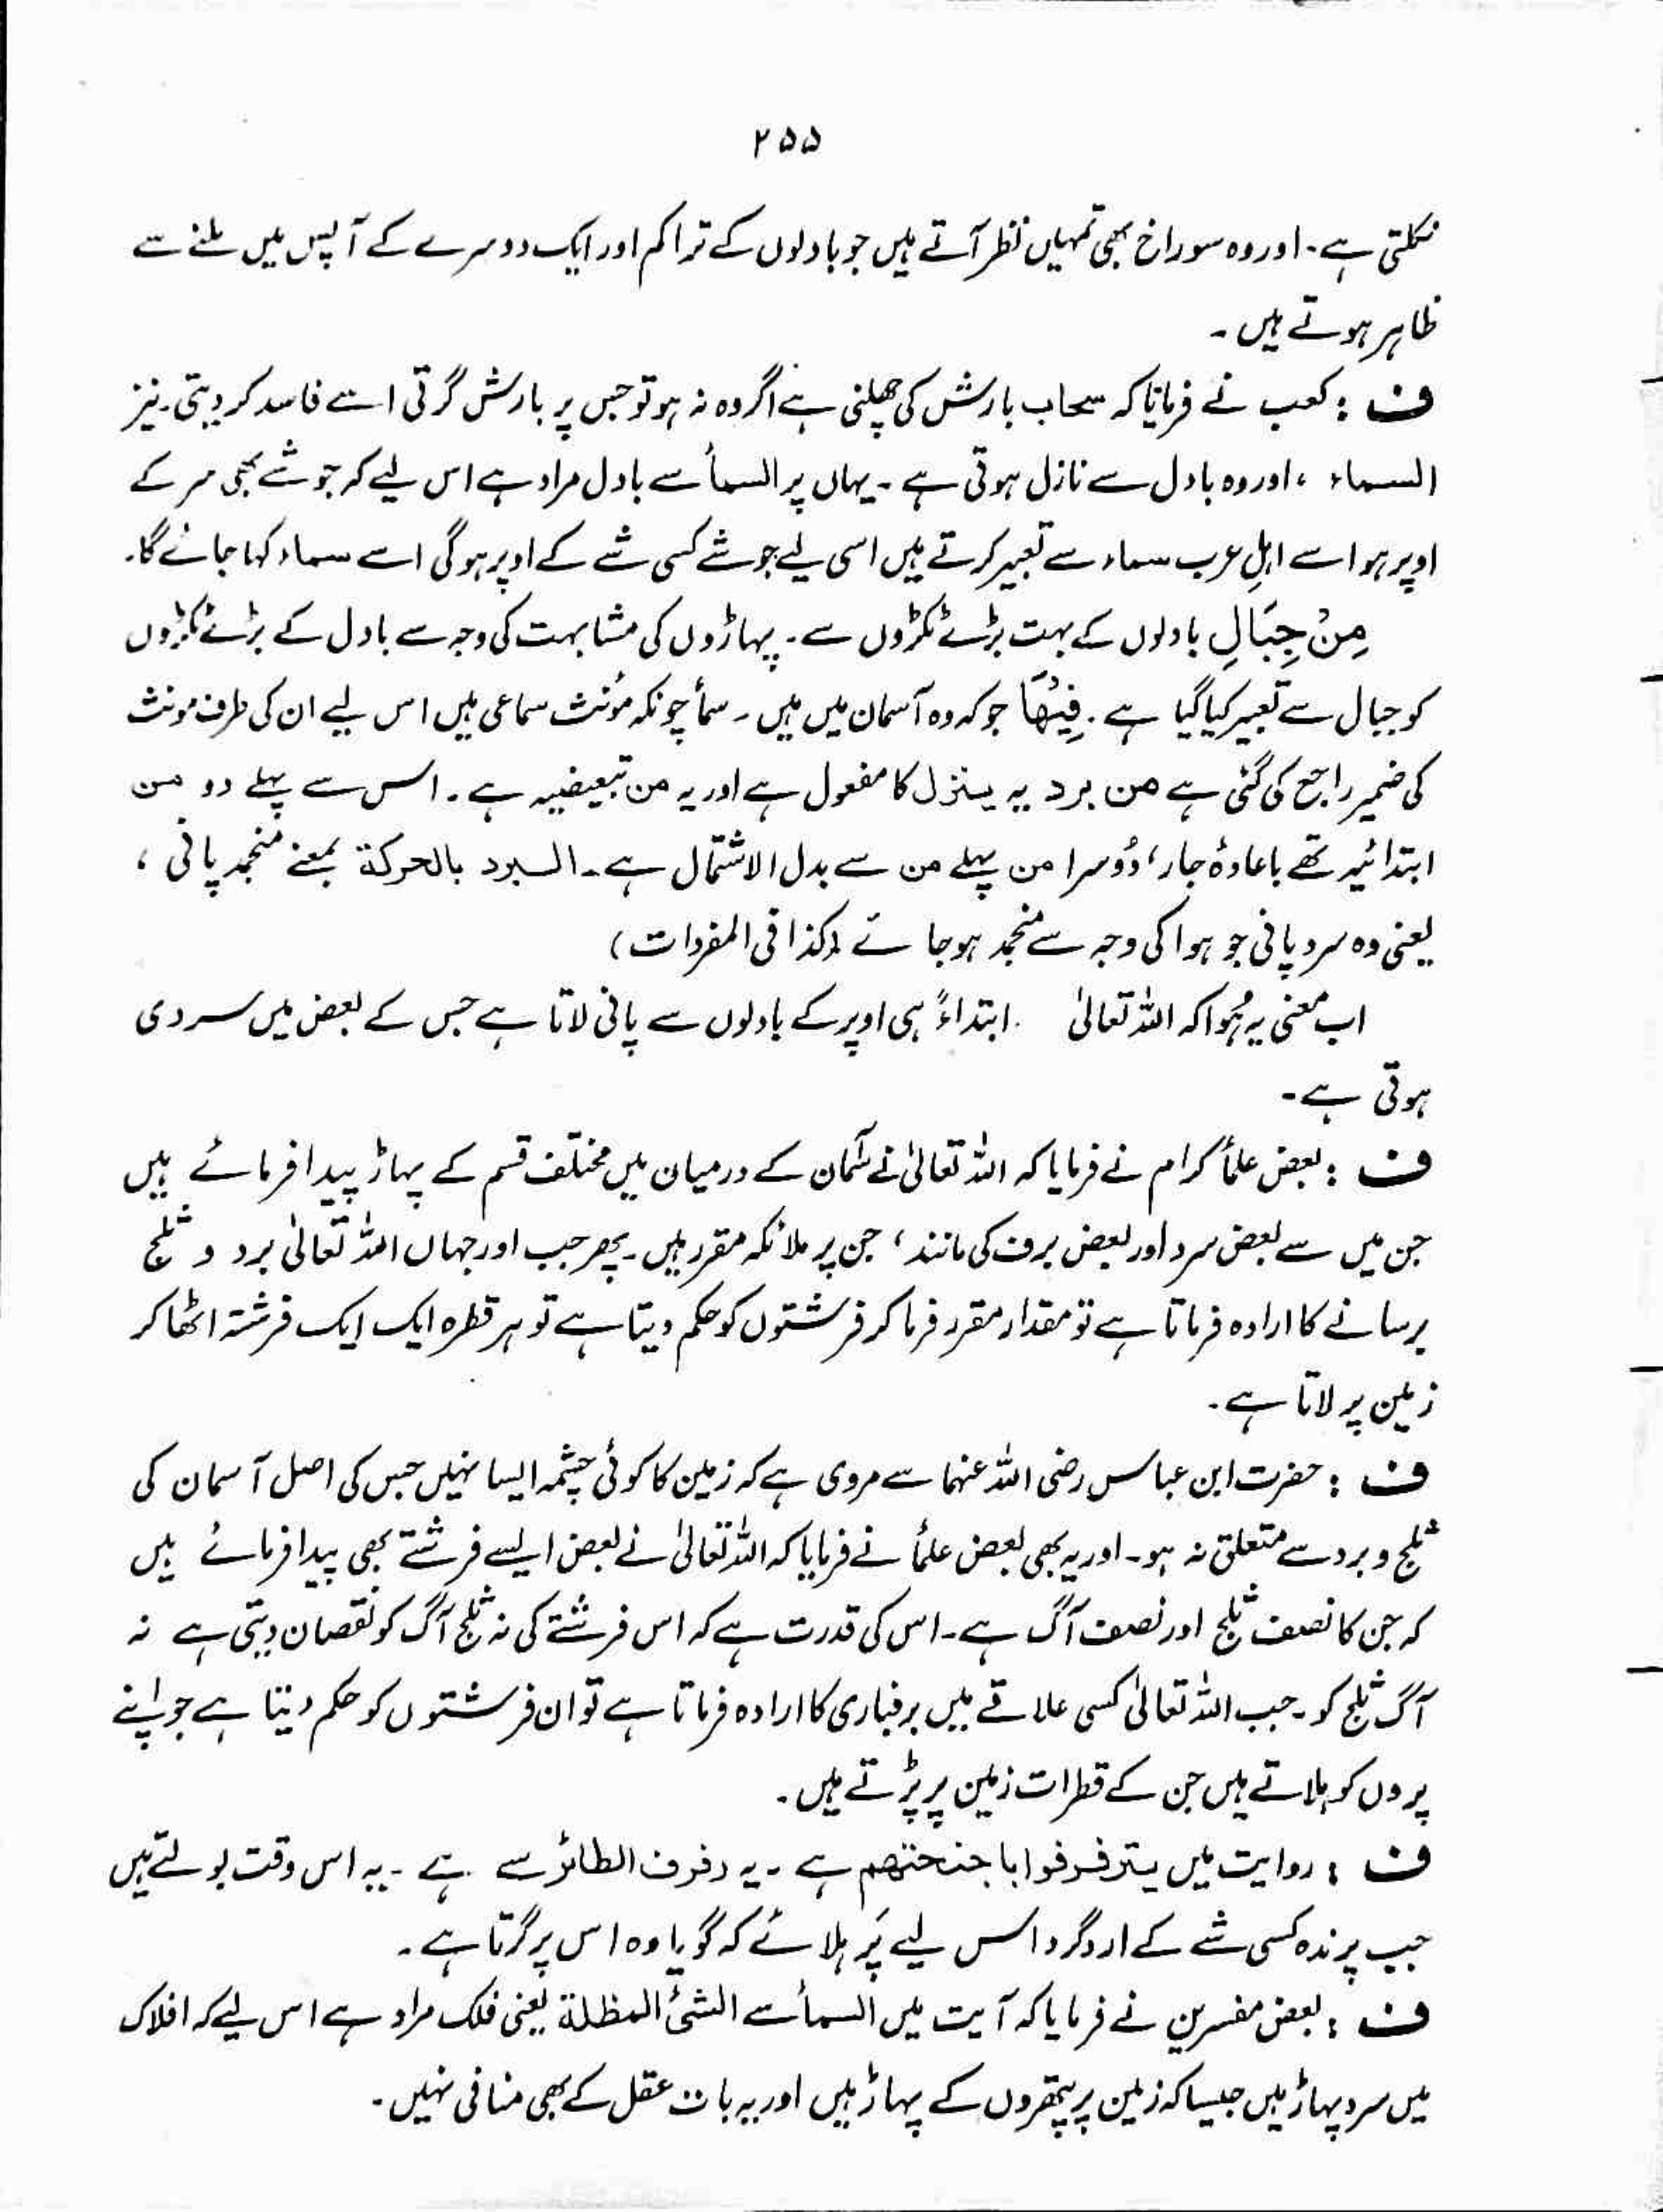 ۲۵۵
نکلتی ہے۔ اور وہ سوراخ بھی تمہیں نظر آتے ہیں جو بادلوں کے تراکم اور ایک دوسرے کے آپس میں ملنے سے
ظاہر ہوتے ہیں۔
ف : کعب نے فرمایا کہ سحاب بارش کی چھلنی ہے اگر وہ نہ ہو تو جس پر بارش گرتی اسے فاسد کر دیتی۔ نیز
السماء ، اور وہ بادل سے نازل ہوتی ہے۔ یہاں پر السمأ سے بادل مراد ہے اس لیے کہ جو شے بھی سر کے
اوپر ہو اسے اہلِ عرب سماء سے تعبیر کرتے ہیں اسی لیے جو شے کسی شے کے اوپر ہوگی اسے سماء کہا جائے گا۔
مِنْ جِبَالِ بادلوں کے بہت بڑے ٹکڑوں سے۔ پہاڑوں کی مشابہت کی وجہ سے بادل کے بڑے ٹکڑوں
کو جبال سے تعبیر کیا گیا ہے۔ فِیْهَا جو کہ وہ آسمان میں ہیں۔ سمأ چونکہ مؤنث سماعی ہیں اس لیے ان کی طرف مونث
کی ضمیر راجع کی گئی ہے من برد یہ ینزل کا مفعول ہے اور یہ من تبعیضیہ ہے۔ اس سے پہلے دو من
ابتدائیہ تھے باعادۂ جار، دُوسرا من پہلے من سے بدل الاشتمال ہے۔ البرد بالحرکة بمعنے منجمد پانی ،
یعنی وہ سرد پانی جو ہوا کی وجہ سے منجمد ہو جائے (کذا فی المفردات)
اب معنی یہ ہُوا کہ اللہ تعالیٰ ابتداءً ہی اوپر کے بادلوں سے پانی لاتا ہے جس کے بعض میں سردی
ہوتی ہے۔
ف : بعض علمأ کرام نے فرمایا کہ اللہ تعالیٰ نے آسمان کے درمیان میں مختلف قسم کے پہاڑ پیدا فرمائے ہیں
جن میں سے بعض سرد اور بعض برف کی مانند، جن پر ملائکہ مقرر ہیں۔ پھر جب اور جہاں اللہ تعالیٰ برد و ثلج
برسانے کا ارادہ فرماتا ہے تو مقدار مقرر فرما کر فرشتوں کو حکم دیتا ہے تو ہر قطرہ ایک ایک فرشتہ اٹھا کر
زمین پر لاتا ہے۔
ف : حضرت ابن عباس رضی اللہ عنہما سے مروی ہے کہ زمین کا کوئی چشمہ ایسا نہیں جس کی اصل آسمان کی
ثلج و برد سے متعلق نہ ہو۔ اور یہ بھی بعض علمأ نے فرمایا کہ اللہ تعالیٰ نے بعض ایسے فرشتے بھی پیدا فرمائے ہیں
کہ جن کا نصف ثلج اور نصف آگ ہے۔ اس کی قدرت ہے کہ اس فرشتے کی نہ ثلج آگ کو نقصان دیتی ہے نہ
آگ ثلج کو۔ جب اللہ تعالیٰ کسی علاقے میں برفباری کا ارادہ فرماتا ہے تو ان فرشتوں کو حکم دیتا ہے جو اپنے
پروں کو ہلاتے ہیں جن کے قطرات زمین پر پڑتے ہیں۔
ف : روایت میں یترفرفوا باجنحتهم ہے۔ یہ رفرف الطائر سے ہے۔ یہ اس وقت بولتے ہیں
جب پرندہ کسی شے کے اردگرد اس لیے پَر ہلائے کہ گویا وہ اس پر گرتا ہے۔
ف : بعض مفسرین نے فرمایا کہ آیت میں السمأ سے الشئ المظلة یعنی فلک مراد ہے اس لیے کہ افلاک
میں سرد پہاڑ ہیں جیسا کہ زمین پر پتھروں کے پہاڑ ہیں اور یہ بات عقل کے بھی منافی نہیں۔